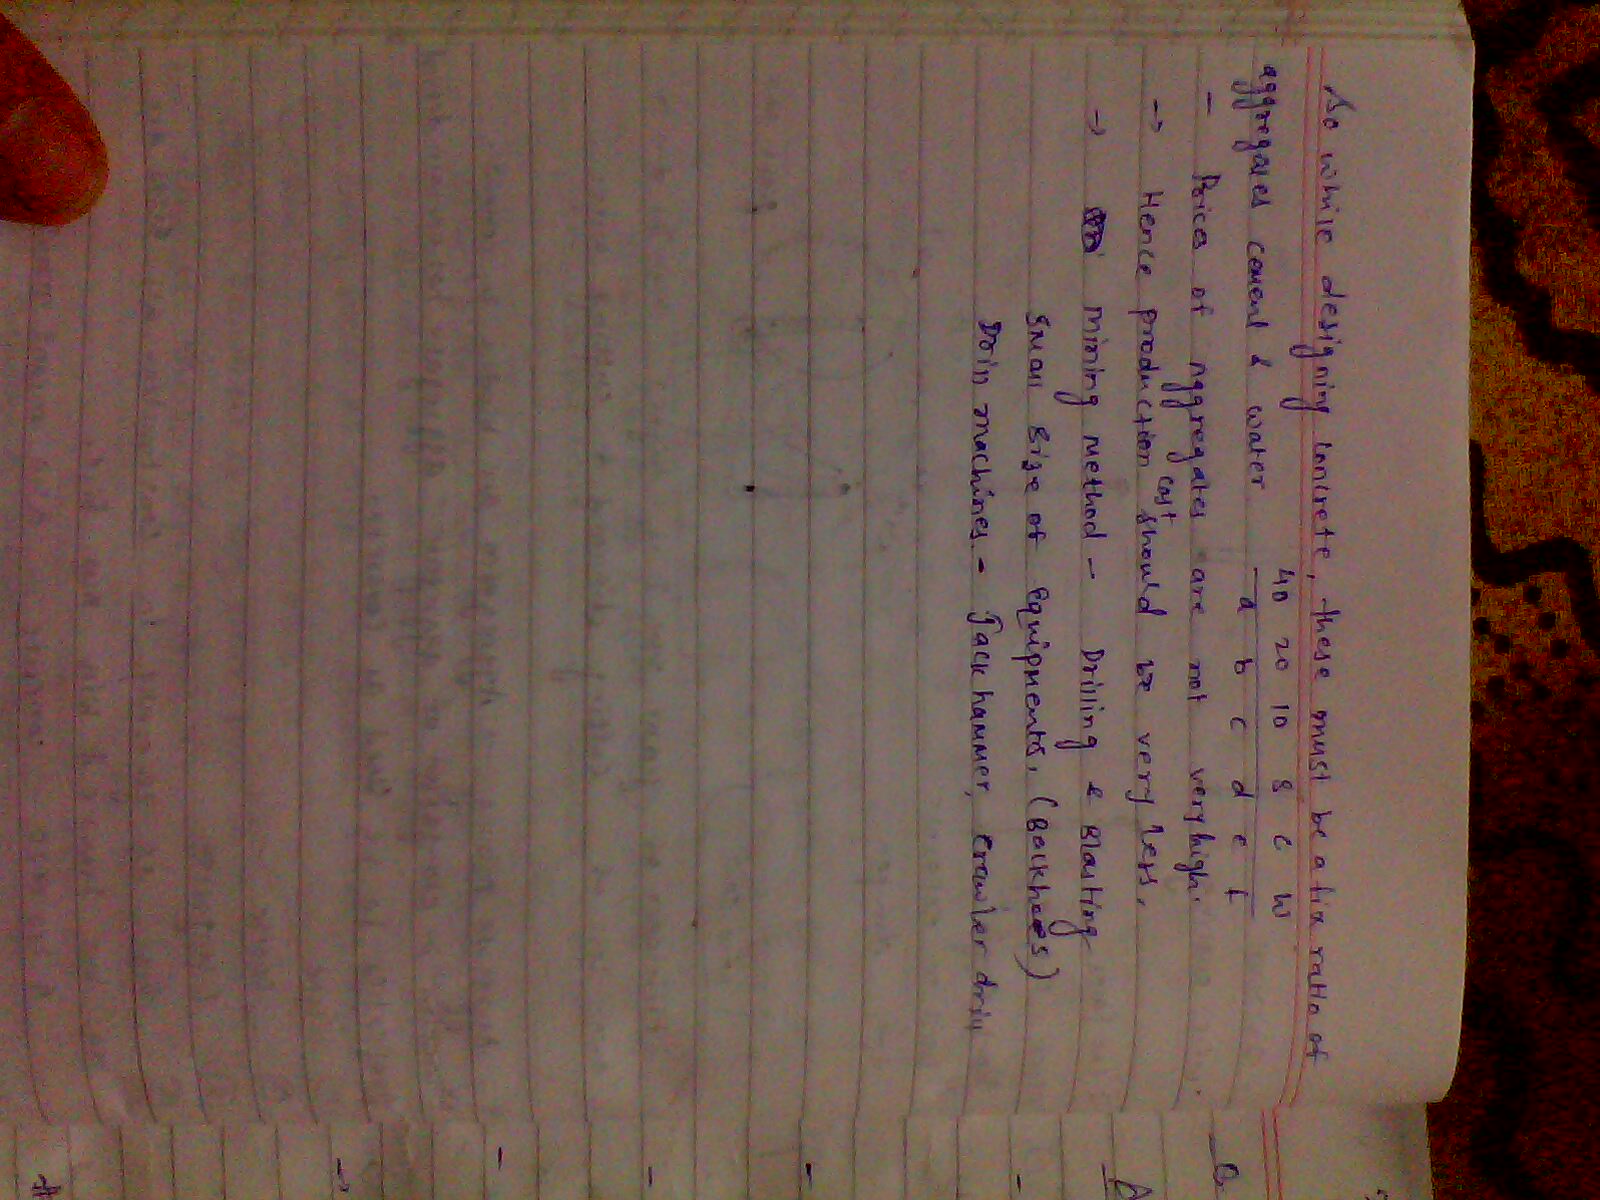 So while designing concrete, these must be a fix ratio of
40 20 10 8 c w
aggregates cement & water a b c d e f
- Prices of Aggregates are not very high.
cost
→ Hence production should be very less.
→ mining method - Drilling & Blasting
Small Size of Equipments. (Backhoes)
Drill machines - Jack hammer, crawler drill